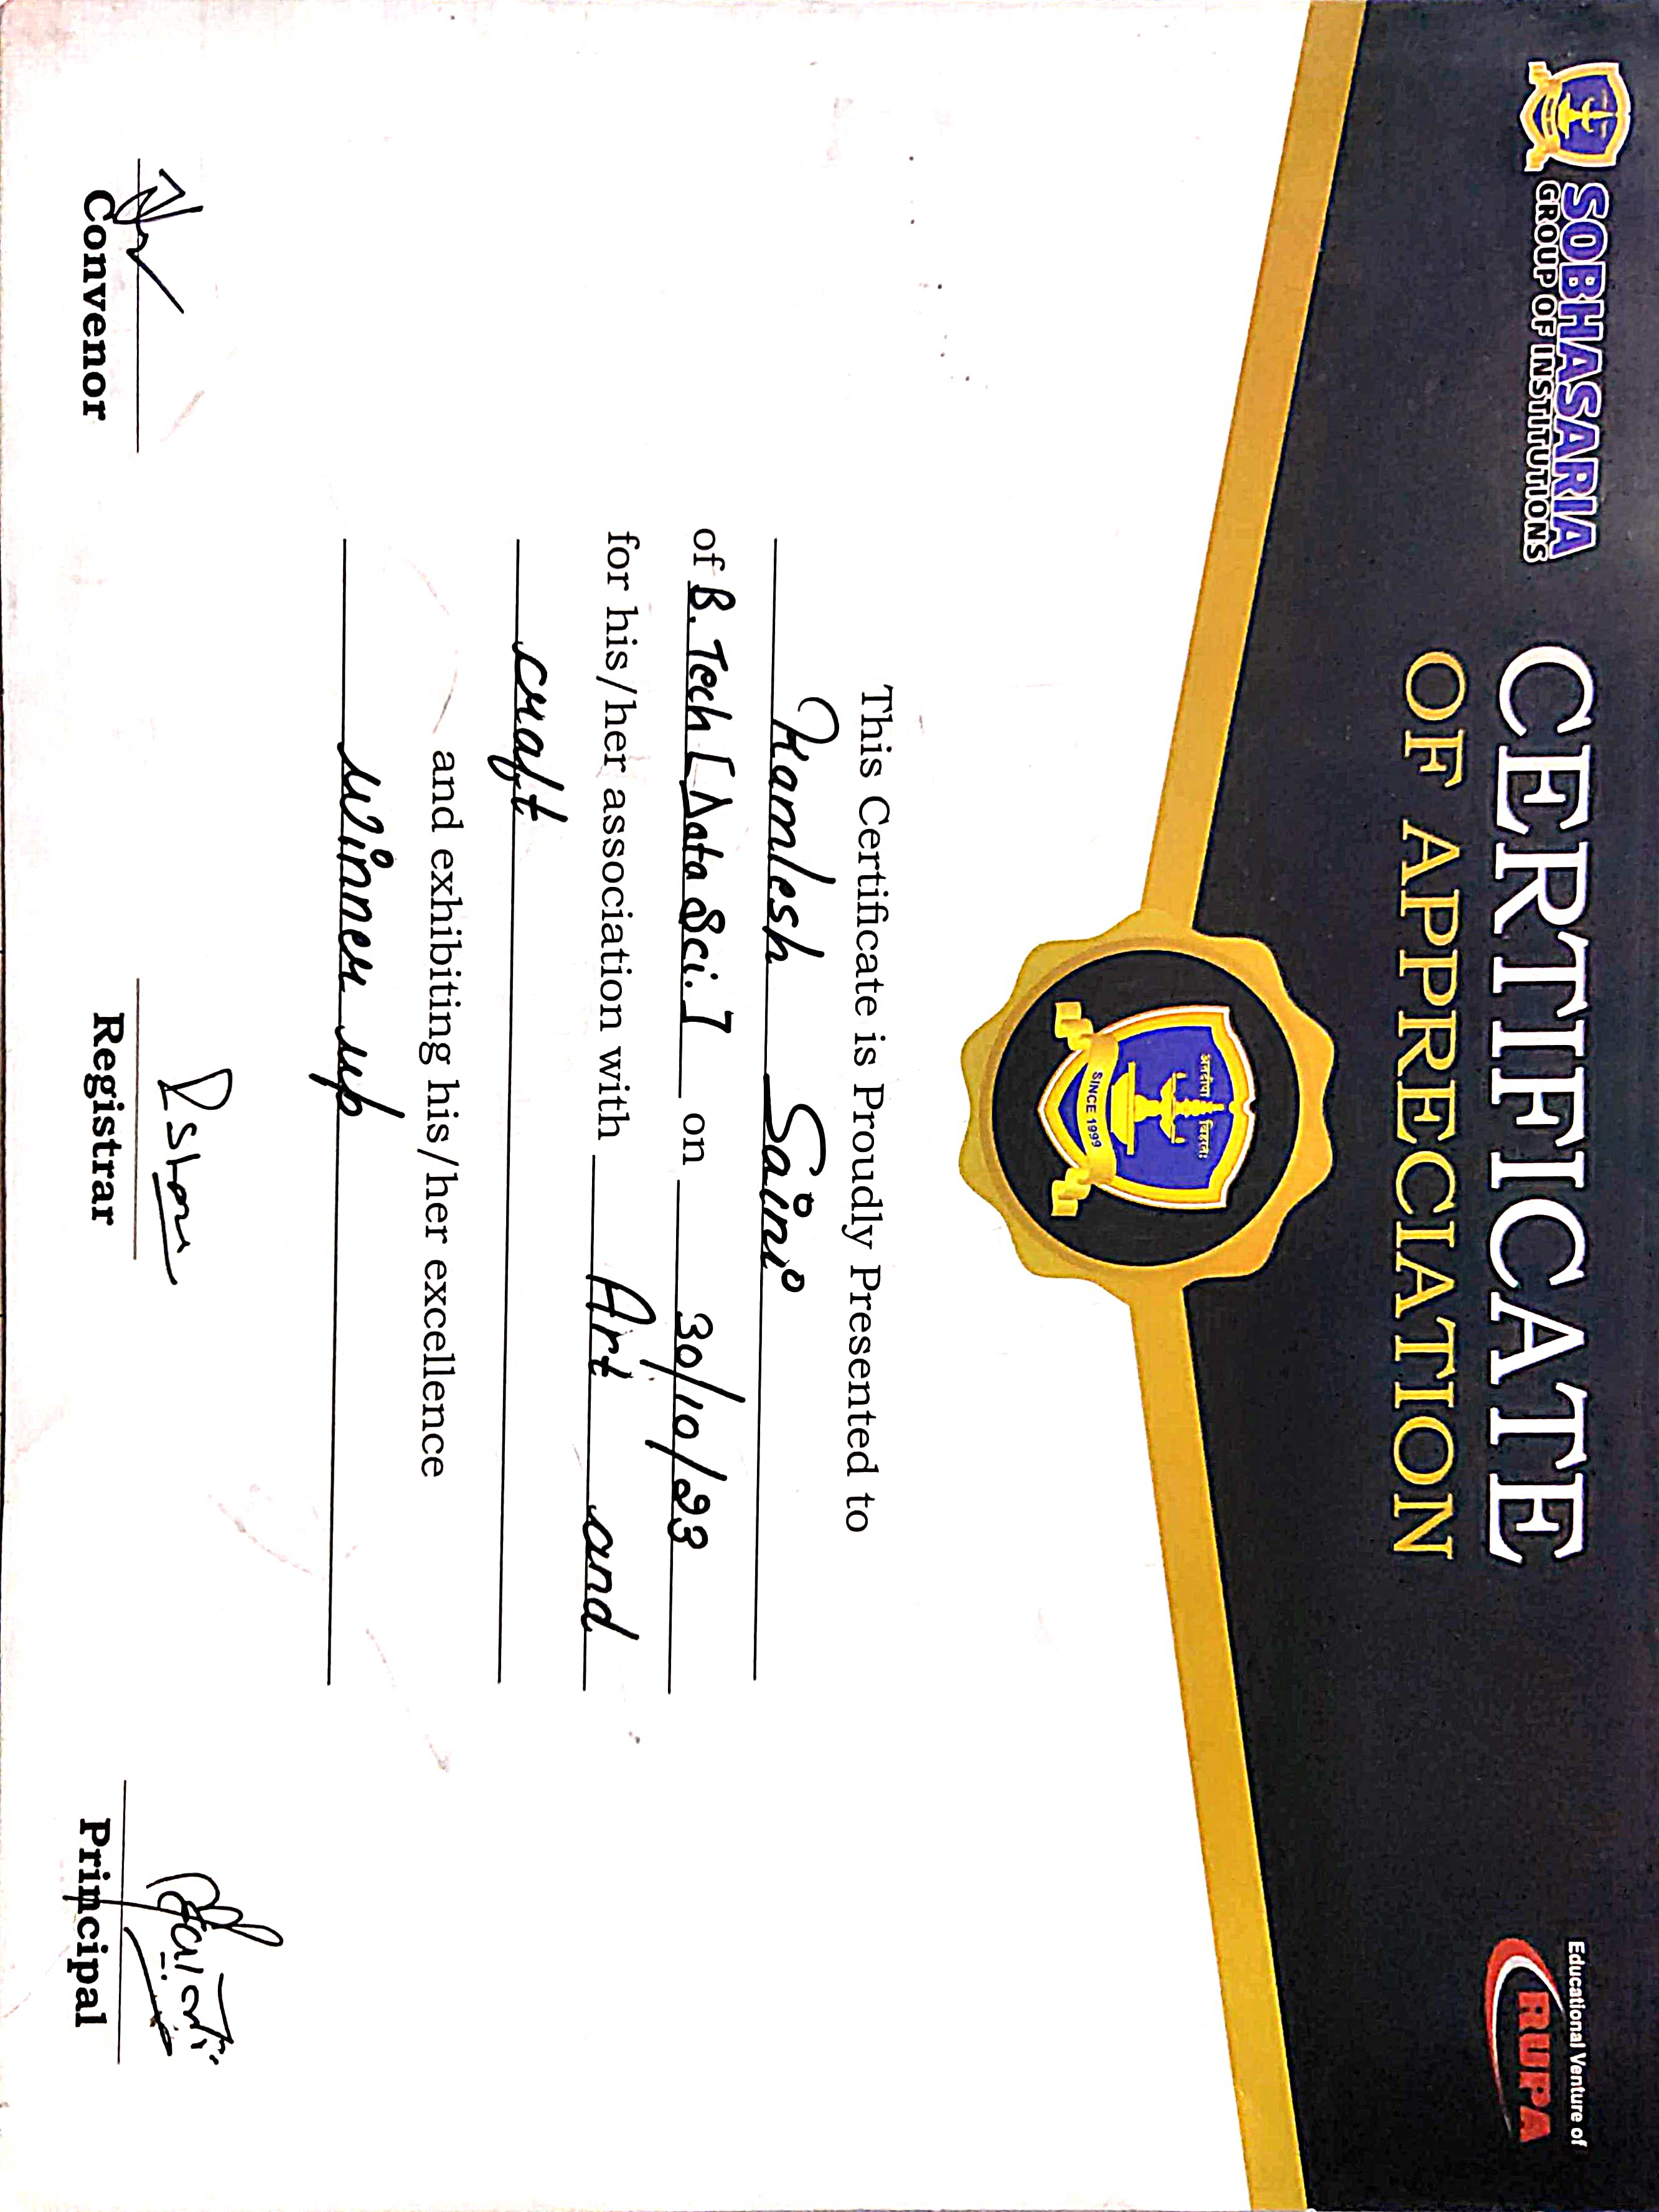 SOBHASARIA
GROUP OF INSTITUTIONS
CERTIFICATE
OF APPRECIATION
Educational Venture of
RUPA
SINCE 1999
This Certificate is Proudly Presented to
Kamlesh Saini
of B. Tech [Data Sci.] on 30/10/23
for his/her association with Art and
craft
and exhibiting his/her excellence
Winner up
Convenor
Registrar
Principal